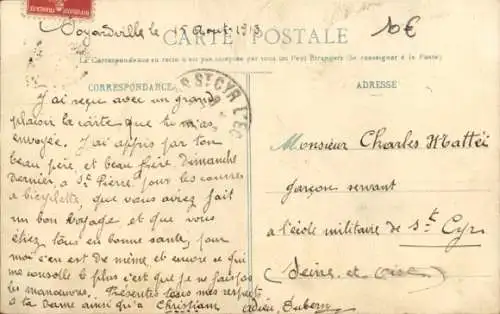 Boyardville le 15 Aout 1913
10€
CARTE POSTALE
La Correspondance au recto n'est pas acceptée par tous les Pays Étrangers (Se renseigner à la Poste)
CORRESPONDANCE
ADRESSE
ST CYR L'EC
J'ai reçue avec un grand
plaisir la carte que tu m'as
envoyée. J'ai appris par ton
beau père, et beau frère, dimanche
dernier, a St Pierre, pour les courses
a bicyclette, que vous aviez fait
un bon voyage et que vous
étiez tous en bonne santé, pour
moi s'en est de même, et encore ce qui
me console le plus c'est que je ne fais pas
les manœuvres. Présentes tous mes respects
a ta dame ainsi qu'a Christiane
adieu,
Monsieur Charles Mattéi
garçon servant
a l'école militaire de St Cyr
(Seine et Oise)